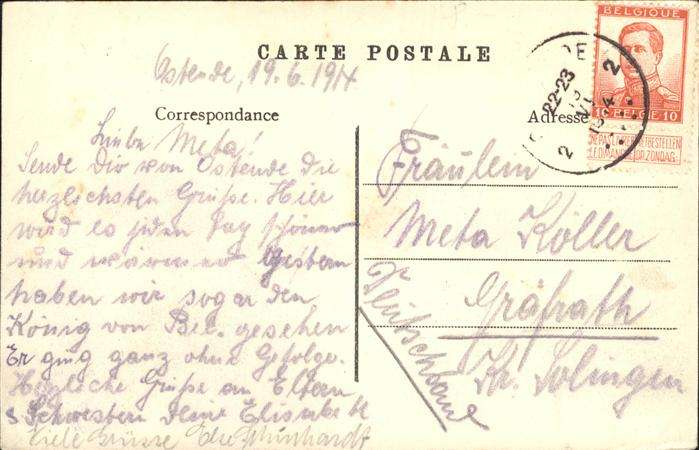 CARTE POSTALE
Ostende, 19.6.1914
Correspondance
Liebe Meta!
Sende Dir von Ostende die
herzlichsten Grüße. Hier
wird es jeden Tag schöner
und wärmer Gestern
haben wir sogar den
König von Bel. gesehen
Er ging ganz ohne Gefolge.
Herzliche Grüße an Eltern
& Schwestern Deine Elisabeth
Viele Grüsse
Adresse
Fräulein
Meta Köller
Gräfrath
Kr. Solingen
Deutschland
BELGIQUE
10 BELGIE 10
22-23
2
2